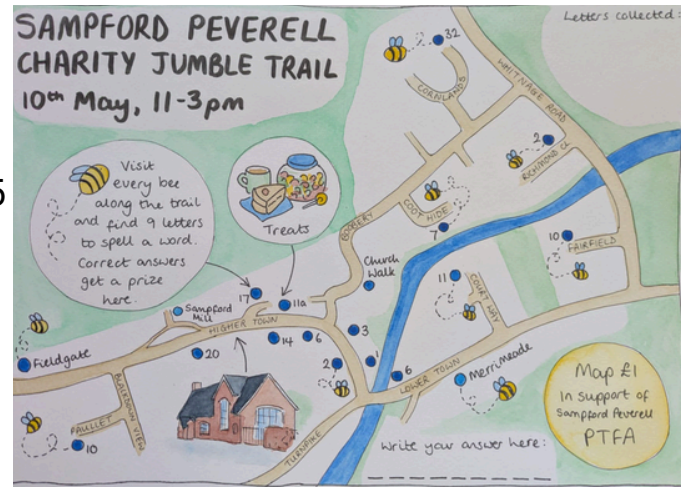 SAMPFORD PEVERELL
CHARITY JUMBLE TRAIL
10th May, 11-3pm
Letters collected:
5
Visit
every bee
along the trail
and find 9 letters
to spell a word.
Correct answers
get a prize
here.
Treats
32
CORNLANDS
WHITNAGE ROAD
2
RICHMOND CL
BOOBERY
COOT HIDE
7
10
FAIRFIELD
Church
Walk
11
COURT WAY
17
11a
Sampford
Mill
HIGHER TOWN
Fieldgate
20
14
6
3
2
1
6
LOWER TOWN
Merrimeade
BLACKDOWN VIEW
PAULLET
10
TURNPIKE
Map £1
in support of
Sampford Peverell
PTFA
Write your answer here: